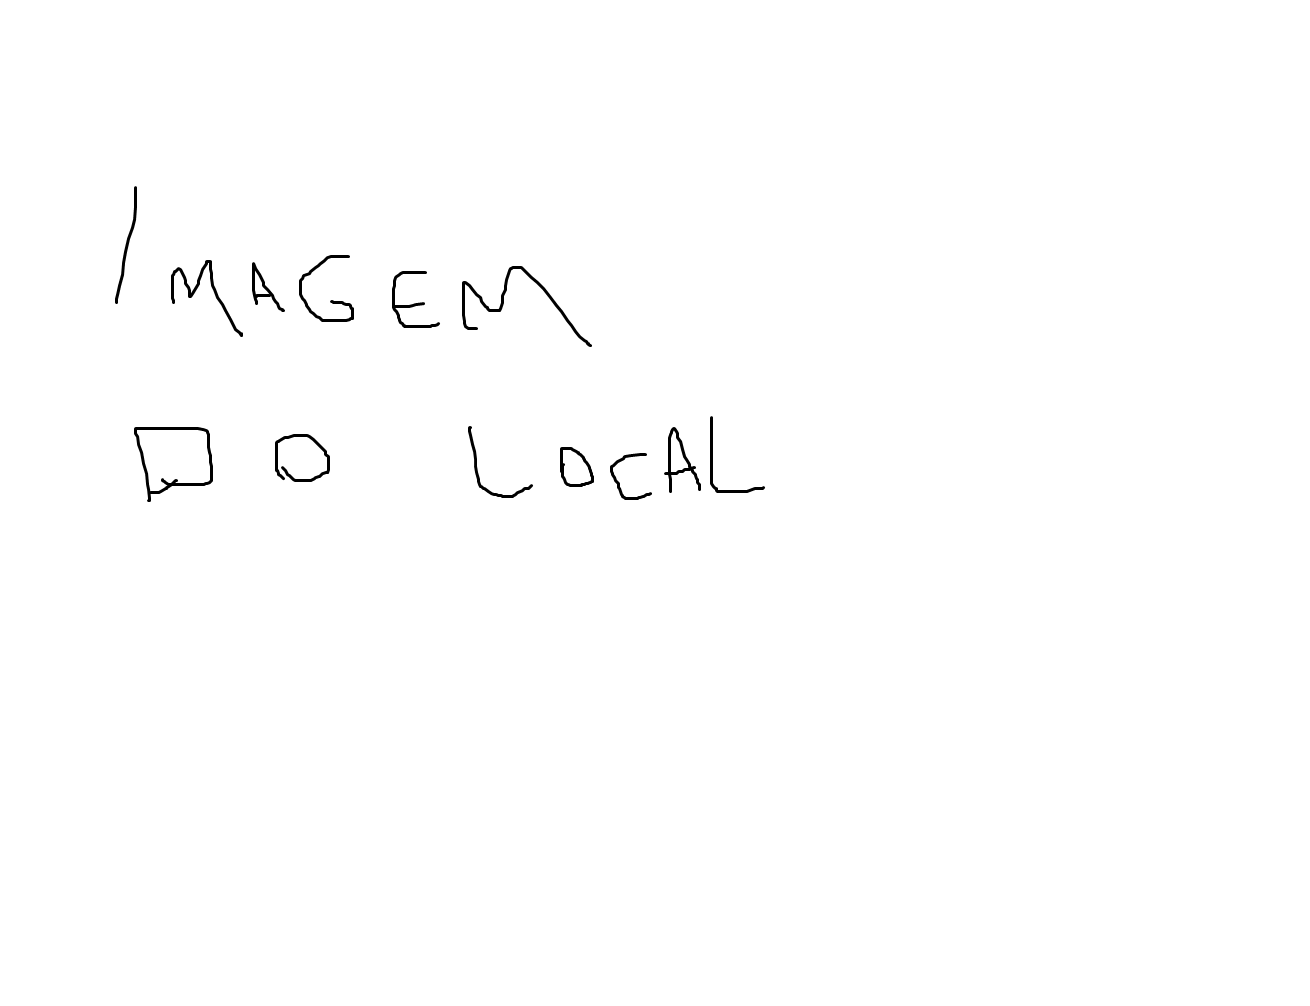 IMAGEM
DO LOCAL